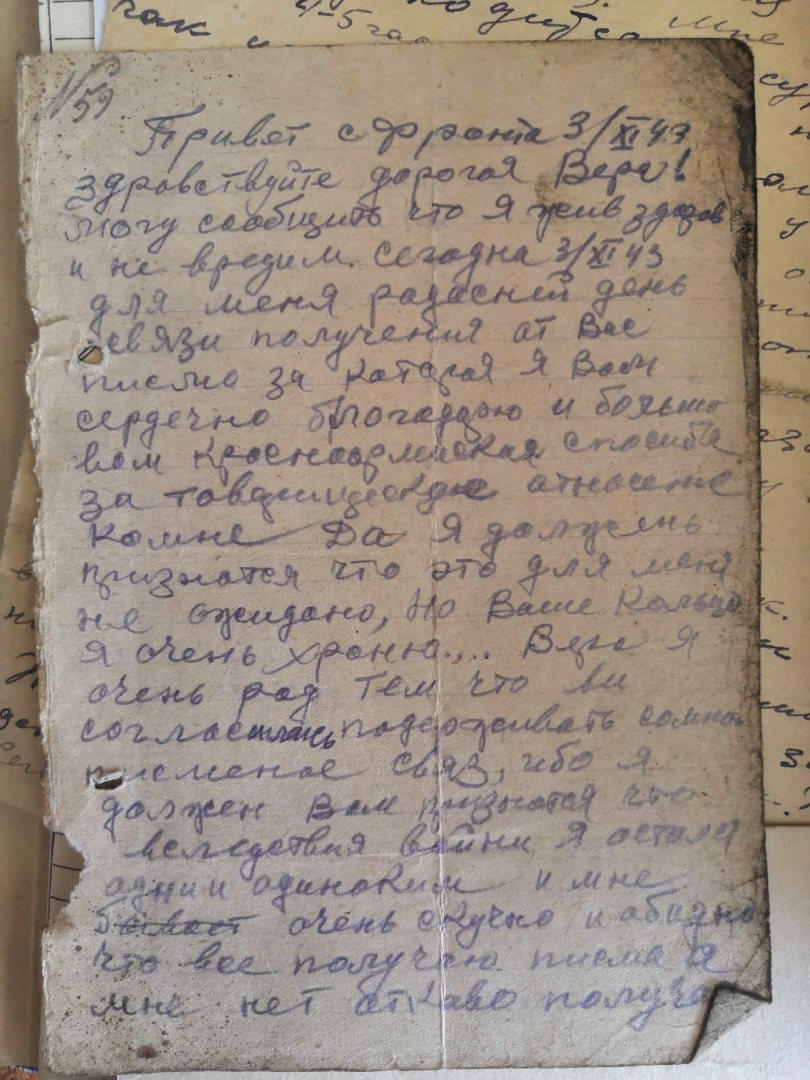 № 59
Привет с фронта 3/XI 43
здравствуйте дорогая Вера!
Могу сообщить что я жив здоров
и не вредим. сегодня 3/XI 43
для меня радасней день
связи получения от Вас
писмо за каторая я Вам
сердечно благодарю и большо
вам красноармиская спосибо
за товарищескае отношение
комне Да я должень
признатся что это для меня
не ожидано, но Ваше Кольцо
я очень храню.... Вера я
очень рад тем что ви
согласились подерживать сомной
писменое связ, ибо я
должен Вам признатся что
вследствия войни я остался
одним одиноким и мне
бывает очень скучно и обидно
что все получаю писма а
мне нет откаво получа